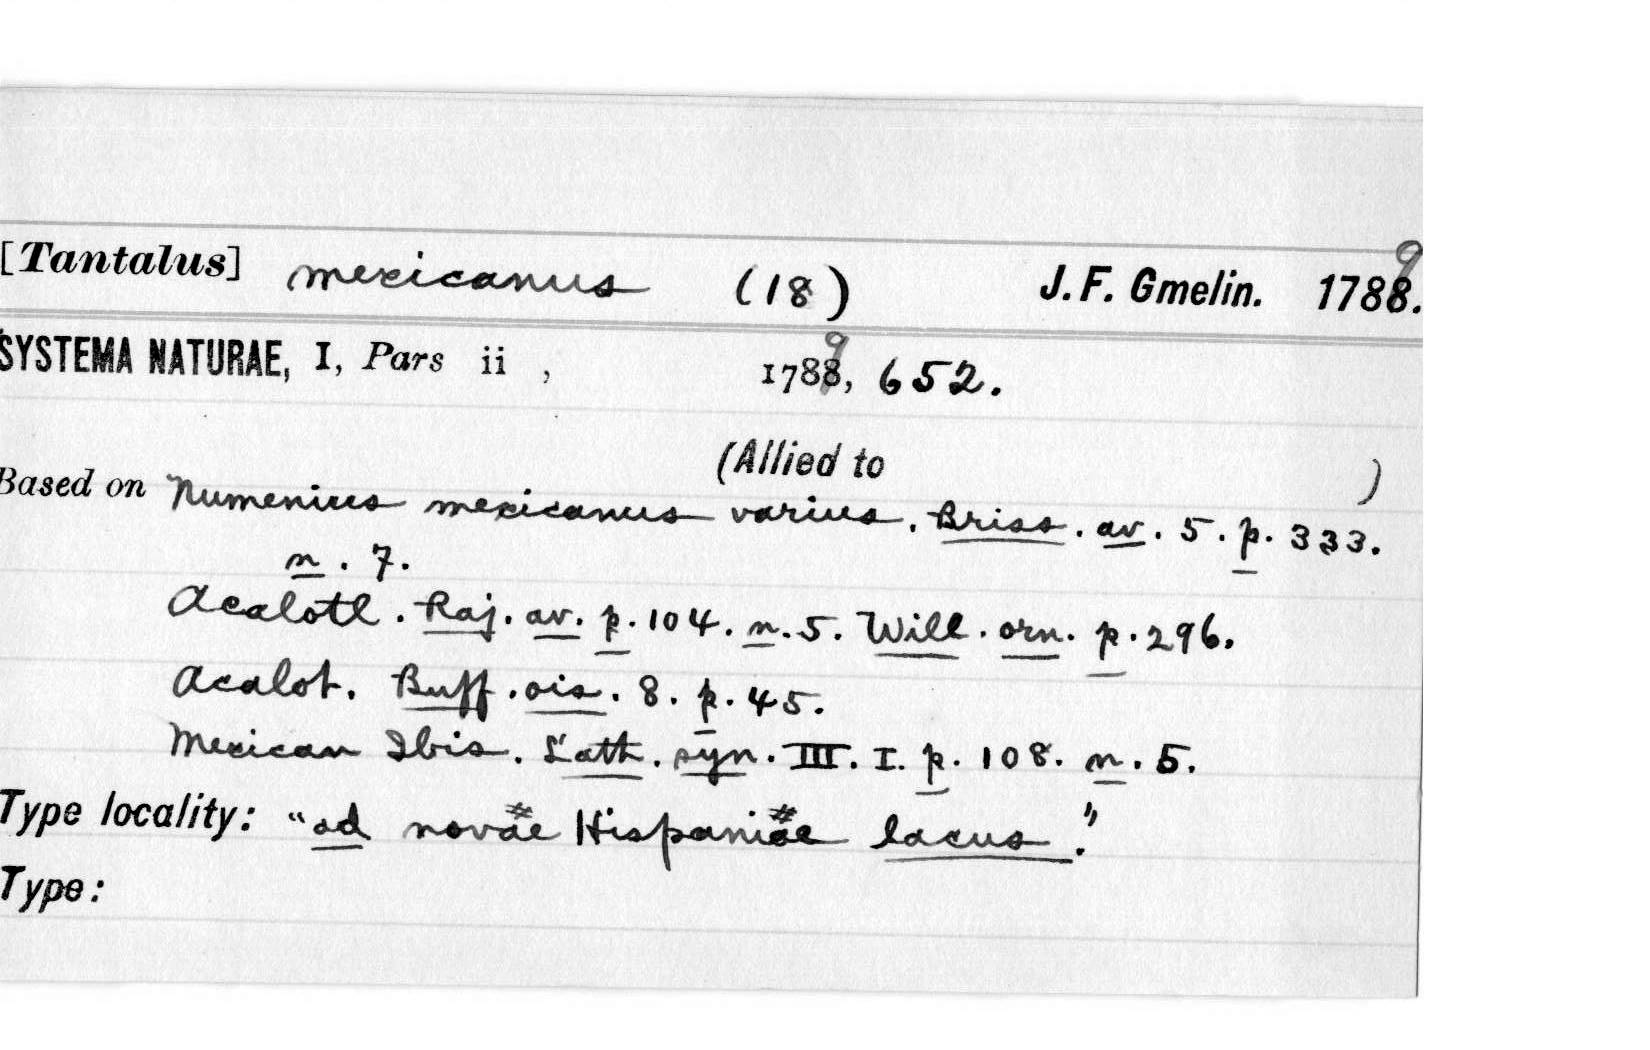 [Tantalus] mexicanus (18) J. F. Gmelin. 1789.
SYSTEMA NATURAE, I, Pars ii , 1789, 652.
(Allied to )
Based on Numenius mexicanus varius. Briss. av. 5. p. 333.
n. 7.
Acalotl. Raj. av. p. 104. n. 5. Will. orn. p. 296.
Acalot. Buff. ois. 8. p. 45.
Mexican Ibis. Lath. syn. III. I. p. 108. n. 5.
Type locality: "ad novae Hispaniae lacus."
Type: